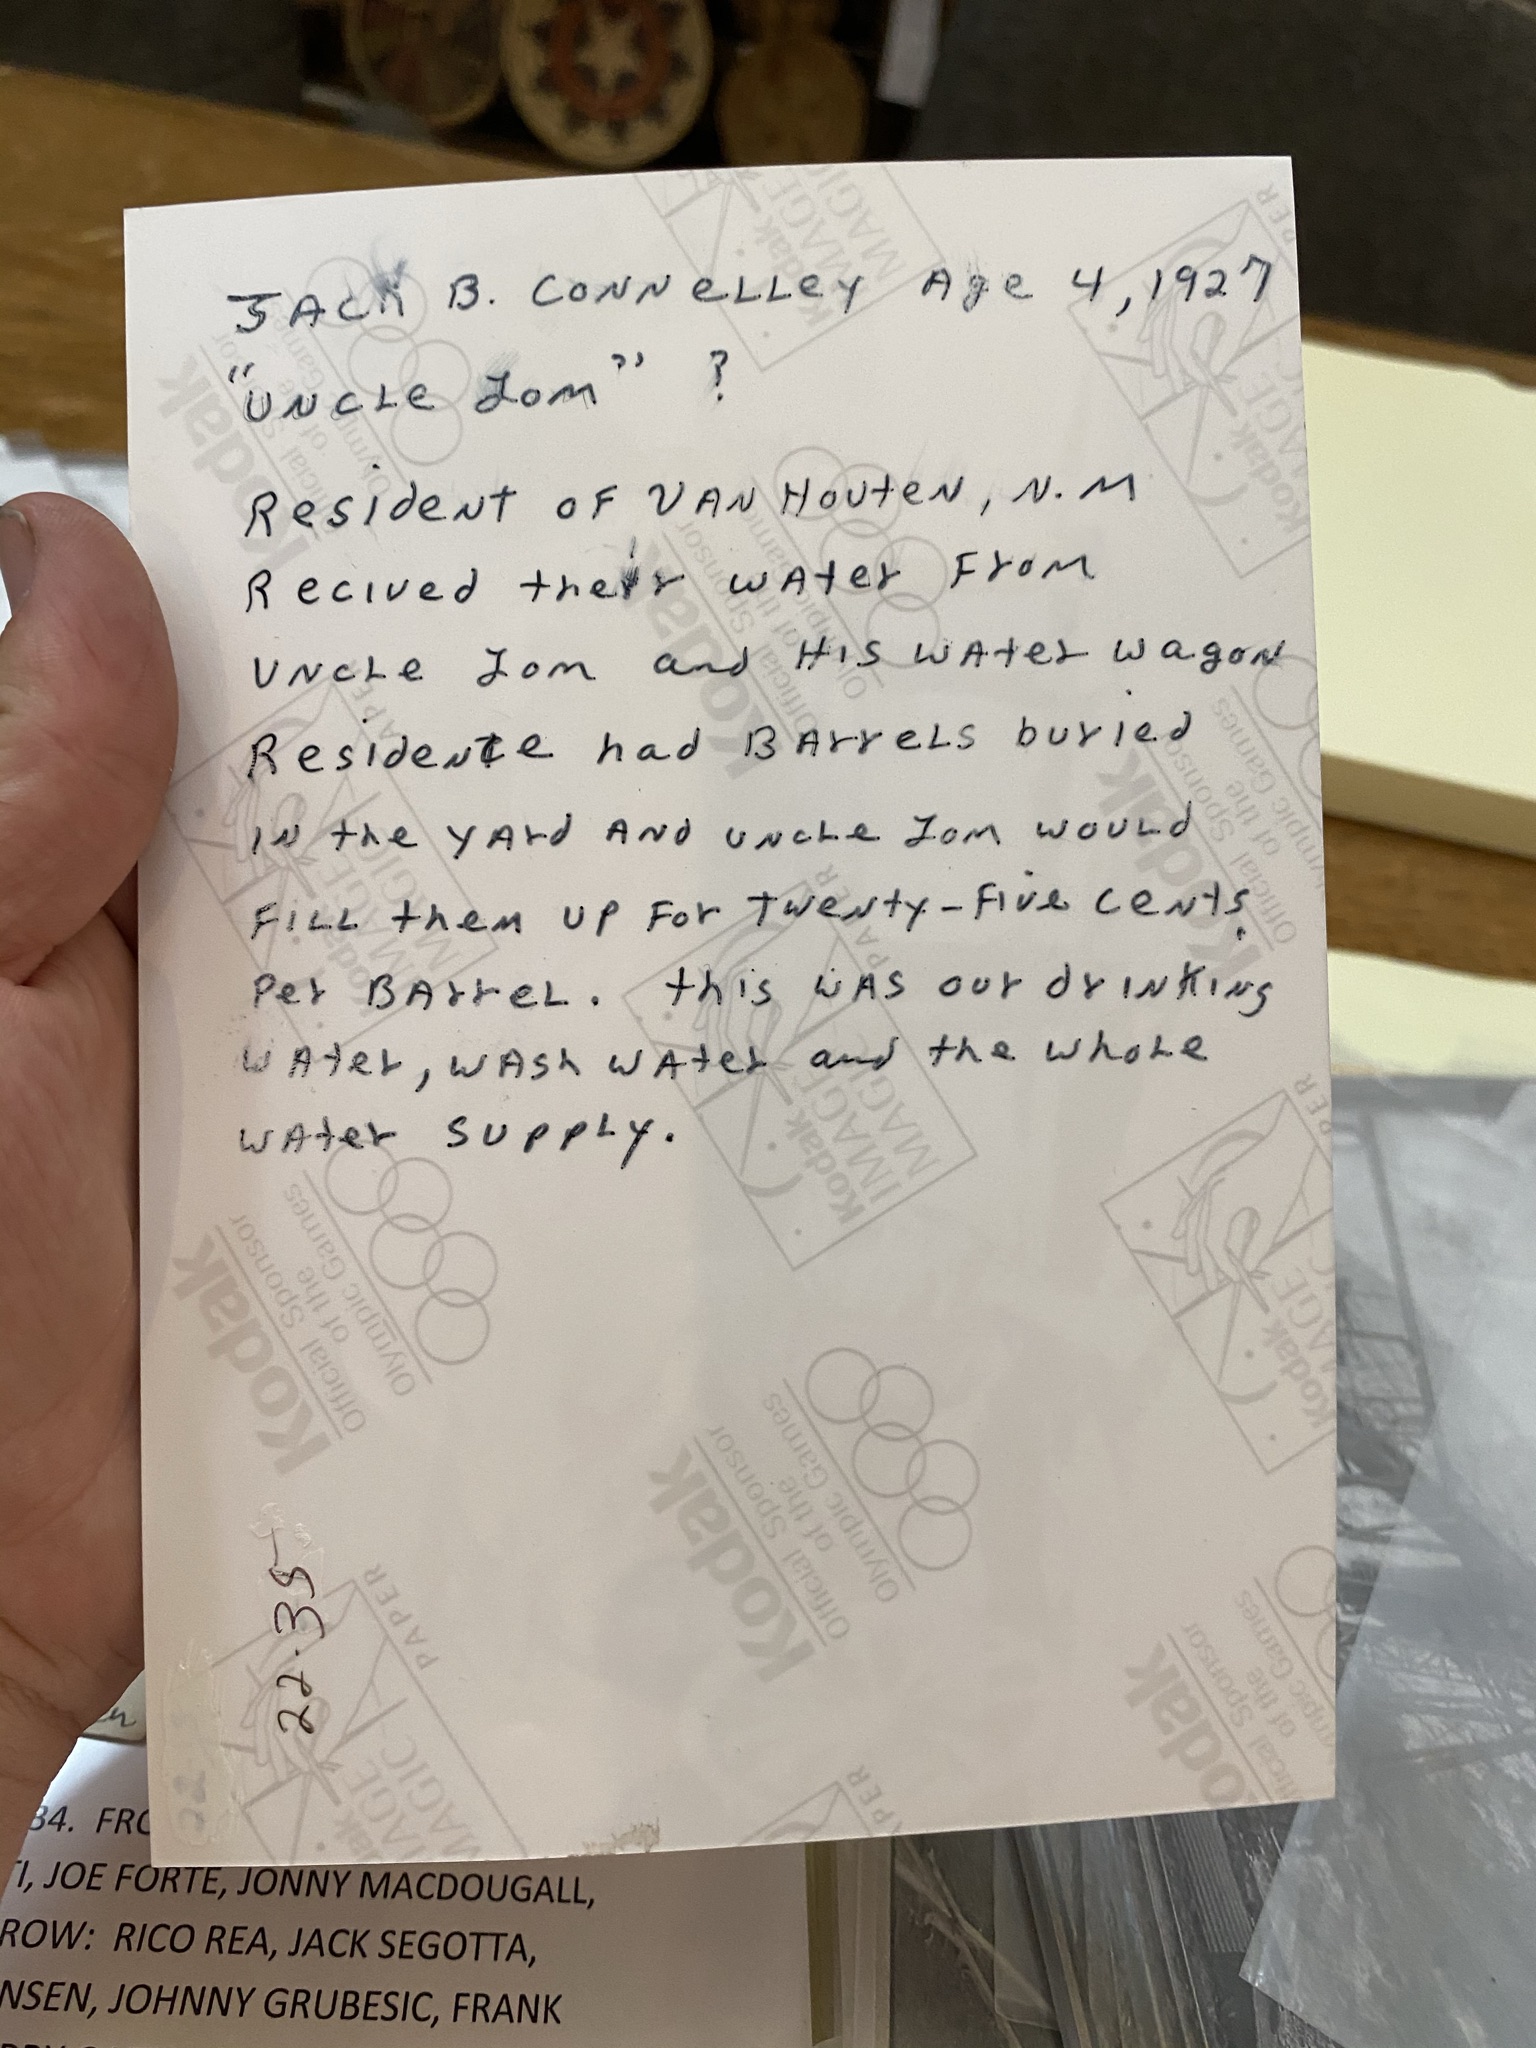 JACK B. CONNELLEY Age 4, 1927
"UNCLE Tom" ?
Resident OF VAN HOUteN, N.M
Recived their water From
UNCLE Tom and HIS water wagon
Residente had BArrels buried
IN the YArd AND UNCLE Tom would
FILL them UP For twenty-five cents
Per BArreL. this was our drINKING
water, wash water and the whole
water supply.
22.35
Kodak
Official Sponsor
of the
Olympic Games
Kodak
IMAGE
MAGIC
PAPER
34. FRO
TI, JOE FORTE, JONNY MACDOUGALL,
ROW: RICO REA, JACK SEGOTTA,
NSEN, JOHNNY GRUBESIC, FRANK